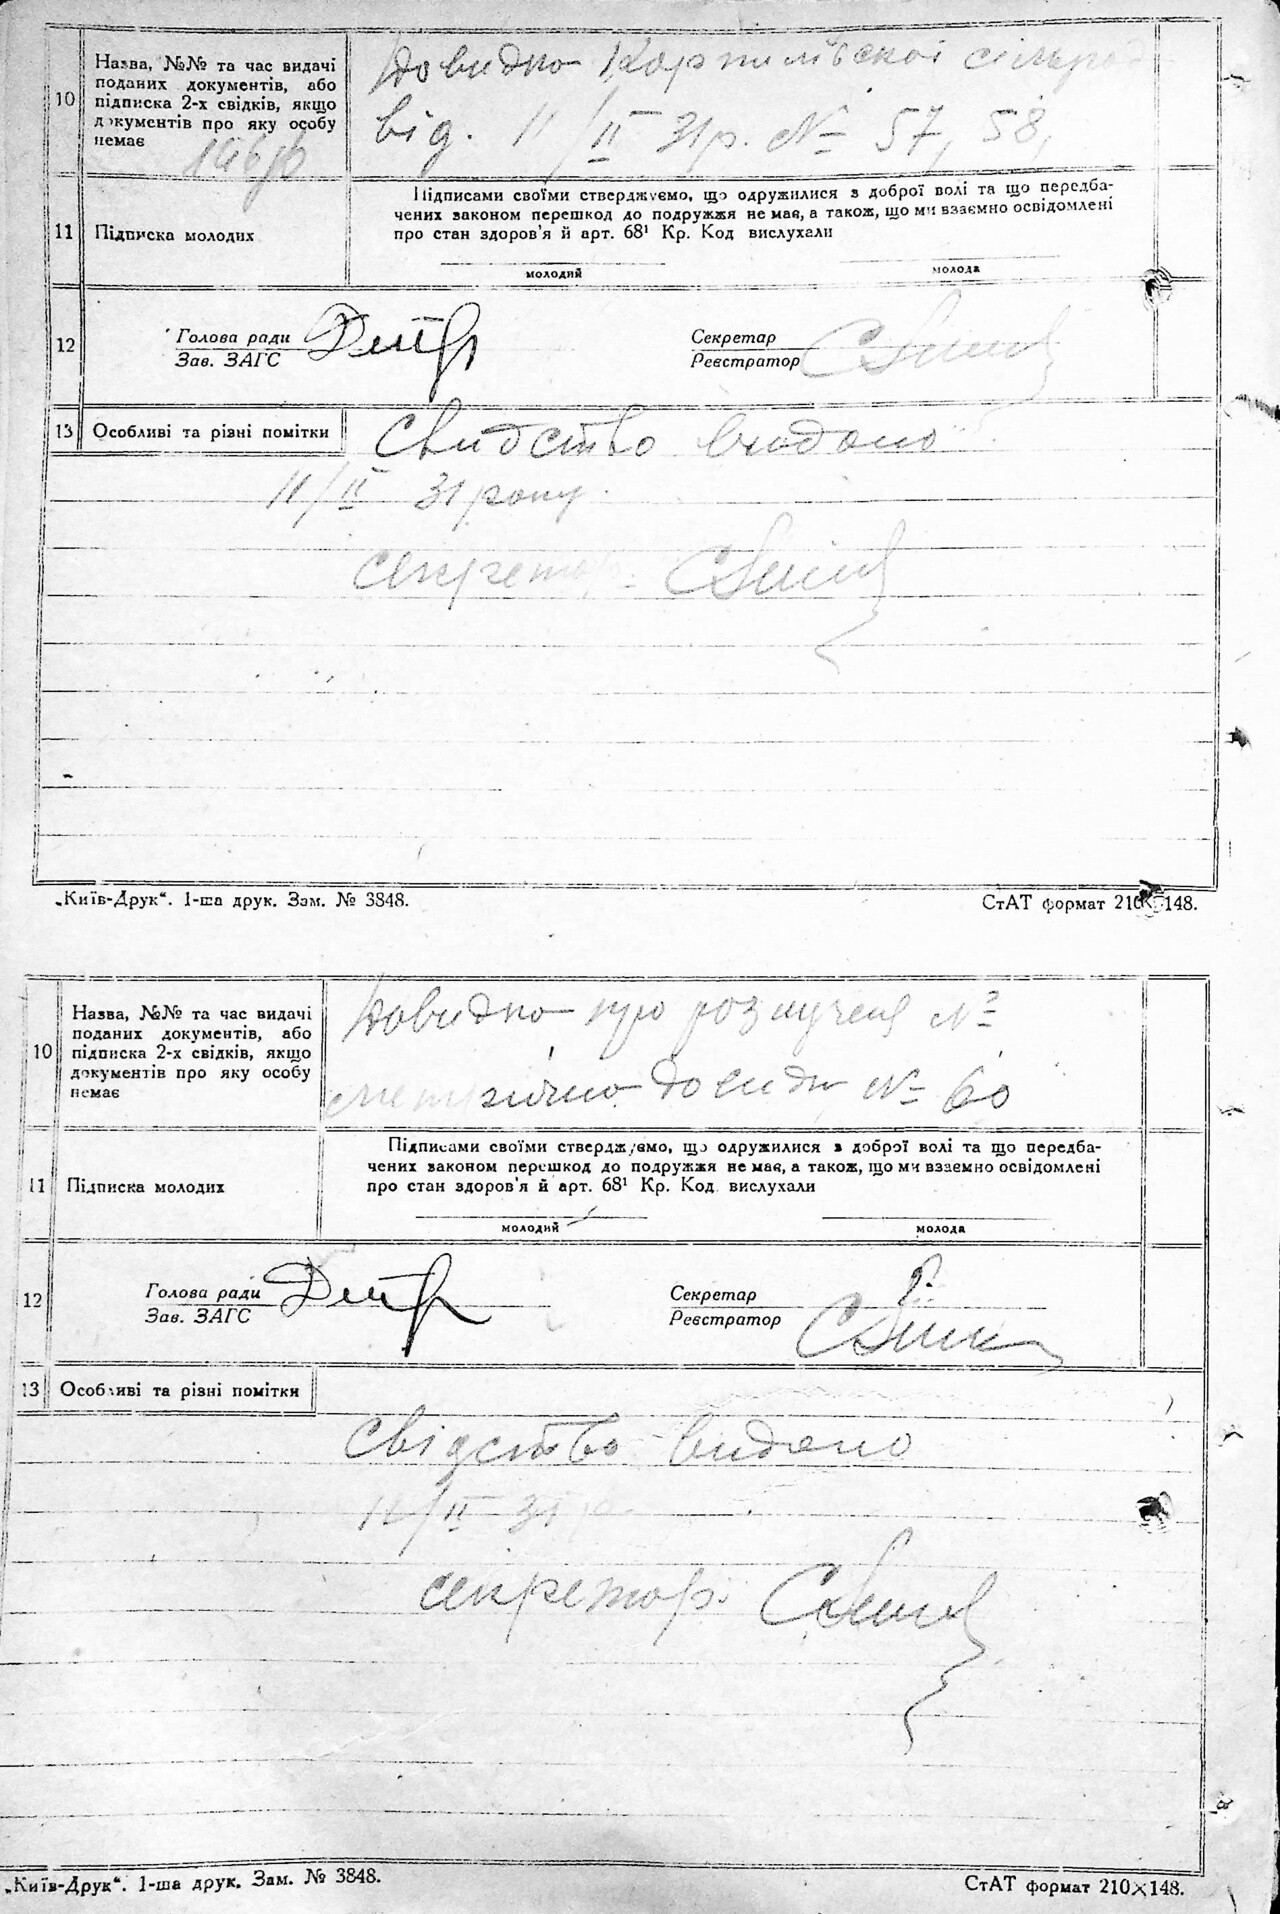 10
Назва, №№ та час видачі
поданих документів, або
підписка 2-х свідків, якщо
документів про яку особу
немає
Довидка сільрад
від. 11/II 31р. № 57, 58,
11
Підписка молодих
Підписами своїми стверджуємо, що одружилися з доброї волі та що передба-
чених законом перешкод до подружжя не має, а також, що ми взаємно освідомлені
про стан здоров'я й арт. 68¹ Кр. Код вислухали
молодий
молода
12
Голова ради
Зав. ЗАГС
Секретар
Реєстратор
13
Особливі та різні помітки
Свидство видано
11/II 31 року.
секретар
„Київ-Друк“. 1-ша друк. Зам. № 3848.
СтАТ формат 210×148.
10
Назва, №№ та час видачі
поданих документів, або
підписка 2-х свідків, якщо
документів про яку особу
немає
Довидка про розлученя №
№ 60
11
Підписка молодих
Підписами своїми стверджуємо, що одружилися з доброї волі та що передба-
чених законом перешкод до подружжя не має, а також, що ми взаємно освідомлені
про стан здоров'я й арт. 68¹ Кр. Код. вислухали
молодий
молода
12
Голова ради
Зав. ЗАГС
Секретар
Реєстратор
13
Особливі та різні помітки
Свідство видано
11/II 31 р
секретар.
„Київ-Друк“. 1-ша друк. Зам. № 3848.
СтАТ формат 210×148.